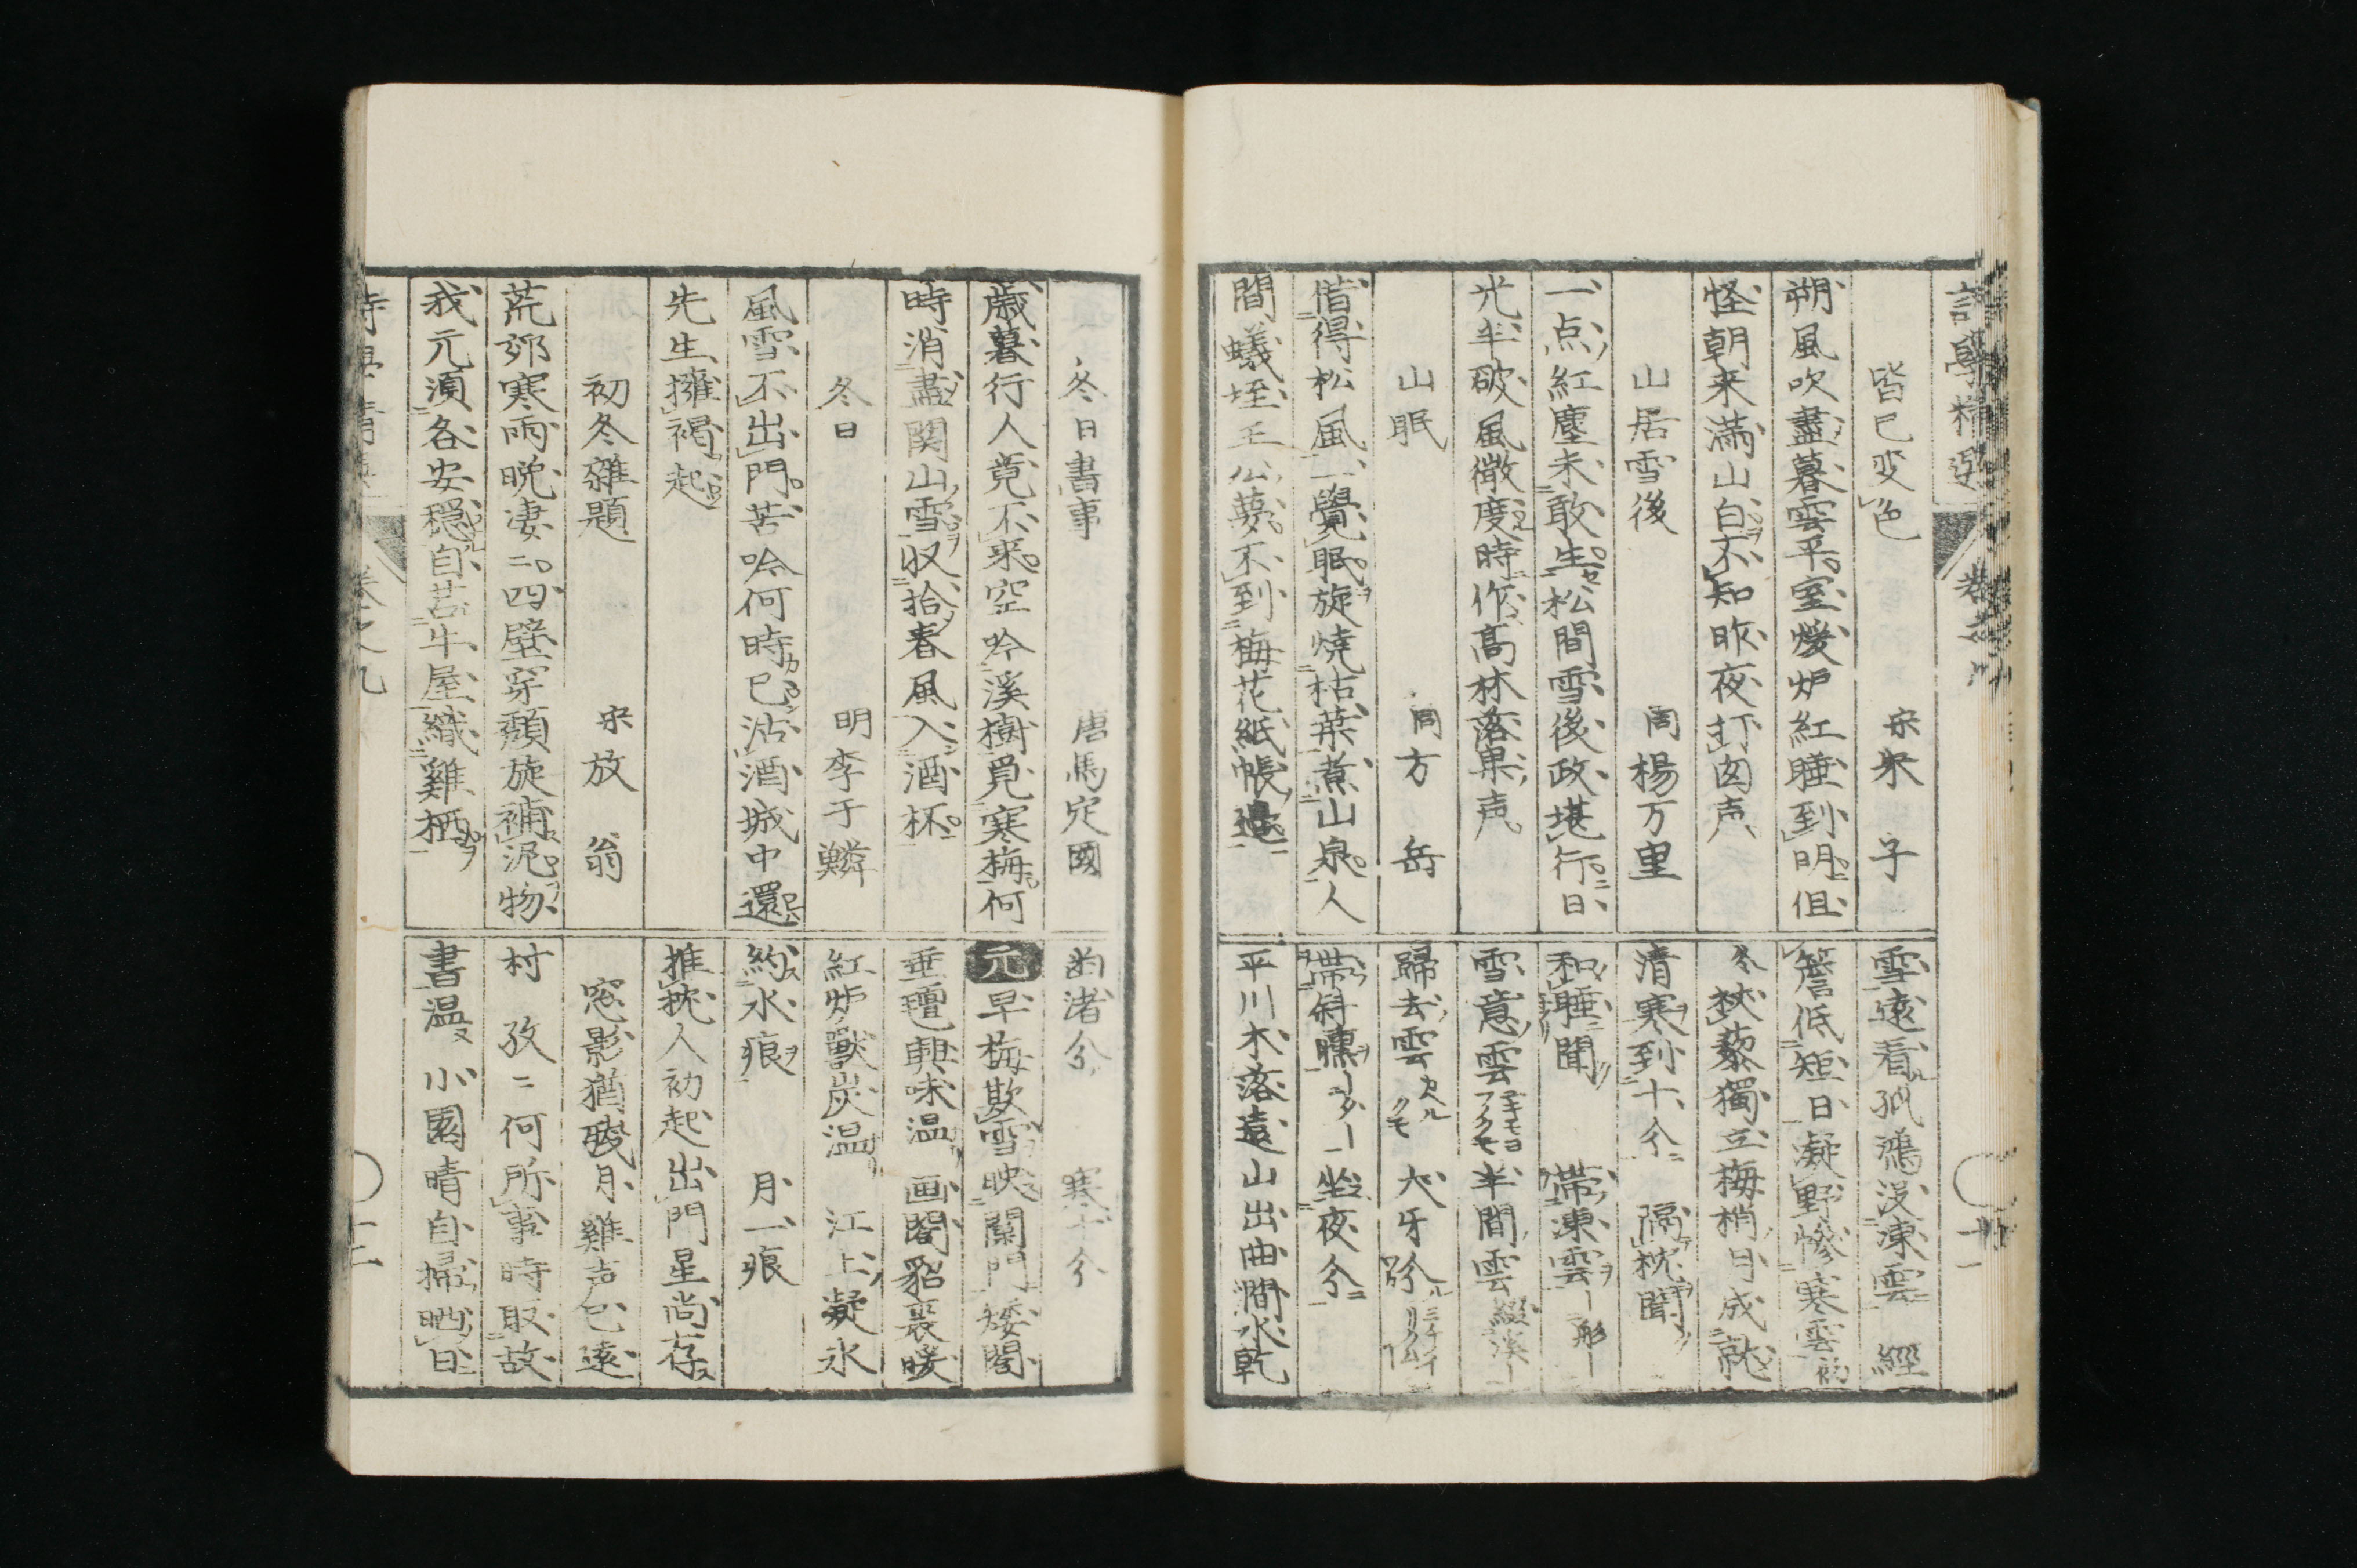 詩學精選
皆已变色　宋朱子
朔風吹盡暮雲平室煖炉紅睡到明但
怪朝来滿山白不知昨夜打囪声
山居雪後　同楊万里
一点紅塵未敢生松間雪後政堪行日
光半破風微度時作高林落果声
山眠　同方岳
借得松風一覺眠旋燒枯葉煮山泉人
間蟻垤王公夢不到梅花紙帳邊
雪遠看孤鴻没凍雲　經
簷低短日凝野惨寒雲初
冬杖藜獨立梅梢日成就
清寒到十分　隔枕聞
和睡聞　帶凍雲
雪意雲半間雲
歸去雲　犬牙分
帶斜曛　坐夜分
平川木落遠山出曲澗水乾
冬日書事　唐馬定國
歳暮行人竟不来空吟溪樹覓寒梅何
時消盡関山雪収拾春風入酒杯
冬日　明李于鱗
風雪不出門苦吟何時已沽酒城中還
先生擁褐起
初冬雜題　宋放翁
荒郊寒雨晩凄〻四壁穿頽旋補泥物
我元湏各安穏自苫牛屋織雞栖
两渚分　寒十分
元　早梅欺雪映闌門矮閣
垂氊興味温　画閣貂裘暖
紅炉獸炭温　江上凝氷
約水痕　月一痕
推枕人初起出門星尚存
窓影猶残月雞声已遠
村　孜〻何所事時取故
書温　小園晴自掃晒日
卷之九
十一